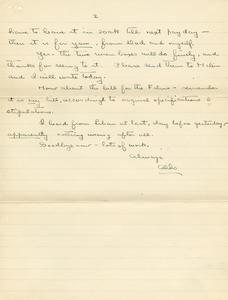 2
have to leave it in soak till next pay day —
then it is for you, from Dad and myself.
Yes - the two man boxes will do finely, and
thanks for seeing to it. Please send them to
and I will write today.
How about the bill for the films - remember
it is my bill, according to original specifications &
stipulations.
I heard from at last, day before yesterday -
apparently nothing wrong after all.
Goodbye now - lots of work.
Always